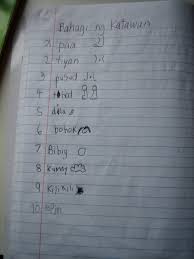 Bahagi ng Katawan
1 paa
2 tiyan
3 pusod
4
5
6 bohok
7 Bibig
8 Kamay
9 Kilikili
10